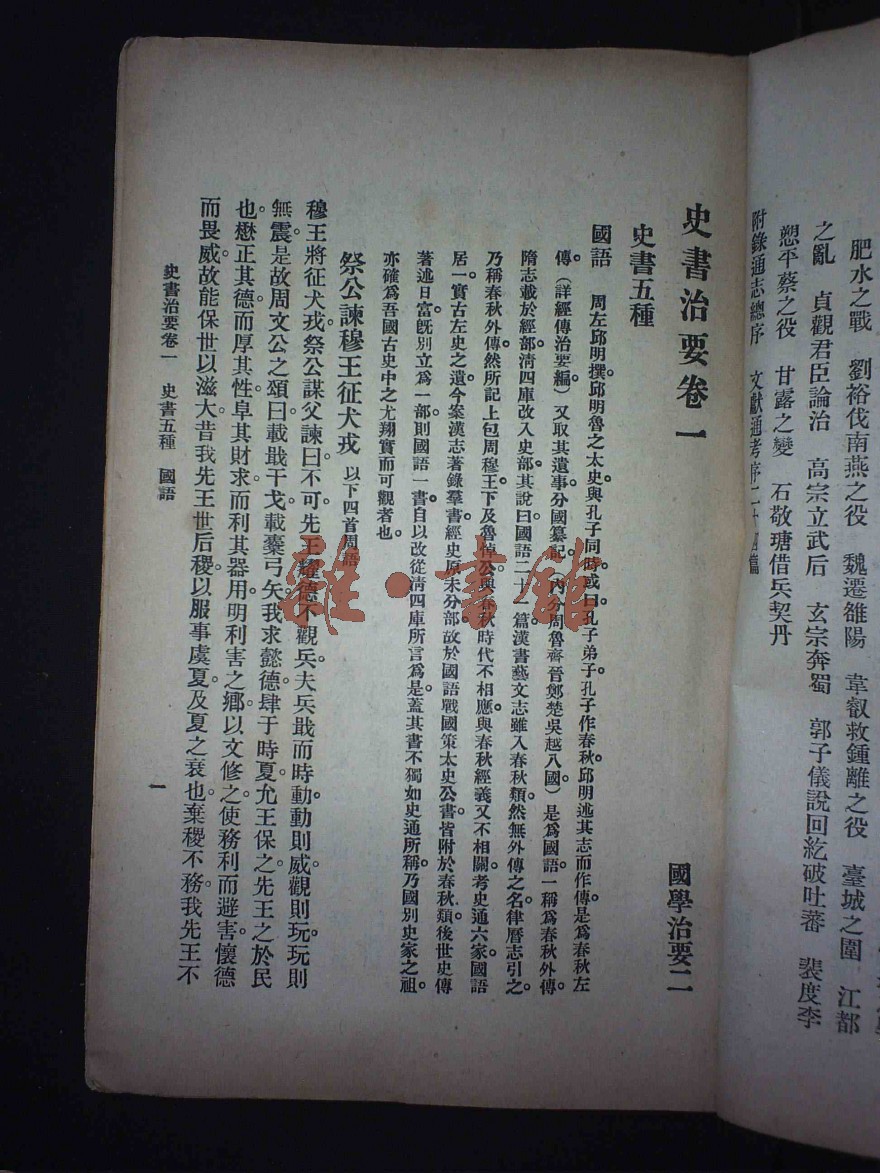 肥水之戰　劉裕伐南燕之役　魏遷雒陽　韋叡救鍾離之役　臺城之圍　江都
之亂　貞觀君臣論治　高宗立武后　玄宗奔蜀　郭子儀說回紇破吐蕃　裴度李
愬平蔡之役　甘露之變　石敬瑭借兵契丹
附錄通志總序　文獻通考序二十四篇
史書治要卷一
國學治要二
史書五種
國語　周左邱明撰。邱明魯之太史。與孔子同時。或曰孔子弟子。孔子作春秋。邱明述其志而作傳。是爲春秋左
傳。（詳經傳治要編）又取其遺事。分國纂記。（內分周魯齊晉鄭楚吳越八國）是爲國語。一稱爲春秋外傳。
隋志載於經部。清四庫改入史部。其說曰。國語二十一篇。漢書藝文志雖入春秋類。然無外傳之名。律曆志引之。
乃稱春秋外傳。然所記上包周穆王。下及魯悼公。與春秋時代不相應。與春秋經義又不相關。考史通六家。國語
居一。實古左史之遺。今案漢志著錄羣書。經史原未分部。故於國語戰國策太史公書。皆附於春秋類。後世史傳
著述日富。旣別立爲一部。則國語一書。自以改從清四庫所言爲是。蓋其書不獨如史通所稱。乃國別史家之祖。
亦確爲吾國古史中之尤翔實而可觀者也。
祭公諫穆王征犬戎　以下四首周語
穆王將征犬戎。祭公謀父諫曰。不可。先王耀德不觀兵。夫兵戢而時動。動則威。觀則玩。玩則
無震。是故周文公之頌曰。載戢干戈。載櫜弓矢。我求懿德。肆于時夏。允王保之。先王之於民
也。懋正其德而厚其性。阜其財求而利其器用。明利害之鄉。以文修之。使務利而避害。懷德
而畏威。故能保世以滋大。昔我先王世后稷。以服事虞夏。及夏之衰也。棄稷不務。我先王不
史書治要卷一　史書五種　國語
一
雜·書館